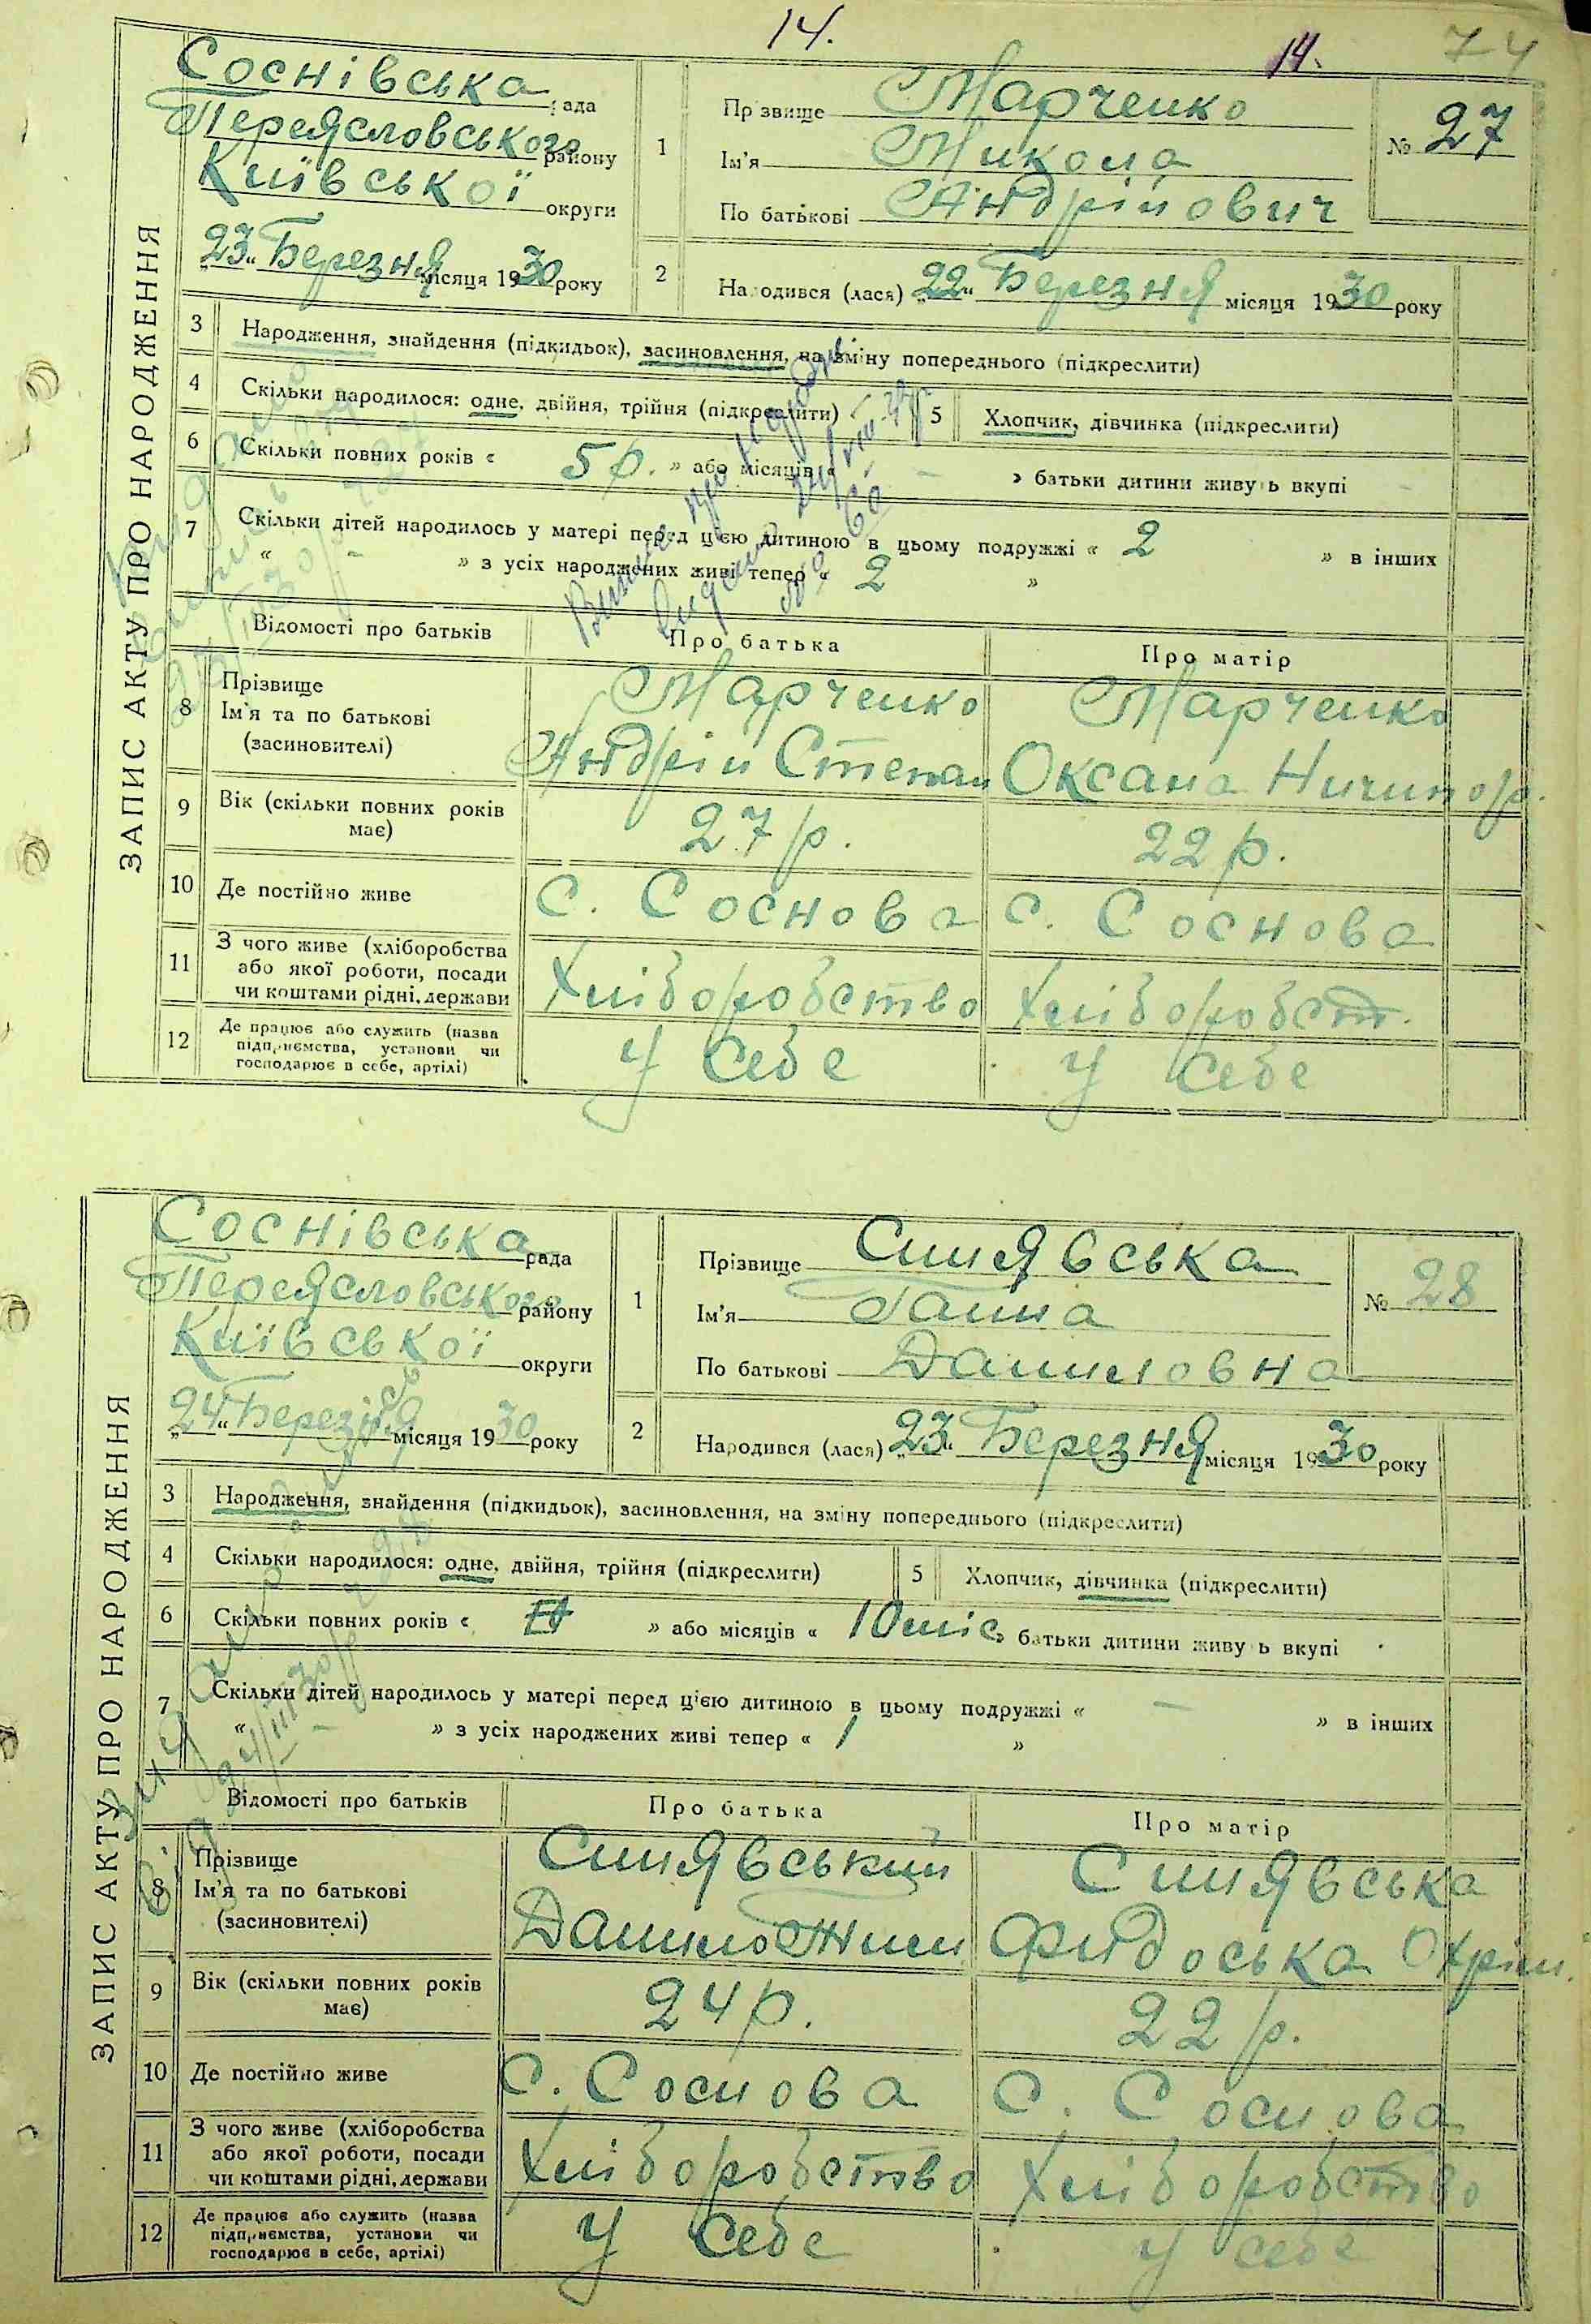 14.
14.
74
ЗАПИС АКТУ ПРО НАРОДЖЕННЯ
Соснівська рада
Переясловського району
Київської округи
„23“ Березня місяця 1930 року
1
Прізвище Марченко
Ім'я Микола
По батькові Андрійович
№ 27
2
Народився (лася) „22“ Березня місяця 1930 року
3 Народження, знайдення (підкидьок), засиновлення, на зміну попереднього (підкреслити)
4 Скільки народилося: одне, двійня, трійня (підкреслити)
5 Хлопчик, дівчинка (підкреслити)
6 Скільки повних років « 5 р. » або місяців « — » батьки дитини живуть вкупі
7 Скільки дітей народилось у матері перед цією дитиною в цьому подружжі « 2 » в інших
« — » з усіх народжених живі тепер « 2 »
Відомості про батьків Про батька Про матір
8 Прізвище
Ім'я та по батькові
(засиновителі)
Марченко
Андрій Степан
Марченко
Оксана Ничипор.
9 Вік (скільки повних років має)
27 р. 22 р.
10 Де постійно живе
с. Соснова с. Соснова
11 З чого живе (хліборобства
або якої роботи, посади
чи коштами рідні, держави
Хліборобство Хліборобст.
12 Де працює або служить (назва
підприємства, установи чи
господарює в себе, артілі)
у себе у себе
ЗАПИС АКТУ ПРО НАРОДЖЕННЯ
Соснівська рада
Переясловського району
Київської округи
„24“ Березня місяця 1930 року
1
Прізвище Синявська
Ім'я Ганна
По батькові Даниловна
№ 28
2
Народився (лася) „23“ Березня місяця 1930 року
3 Народження, знайдення (підкидьок), засиновлення, на зміну попереднього (підкреслити)
4 Скільки народилося: одне, двійня, трійня (підкреслити)
5 Хлопчик, дівчинка (підкреслити)
6 Скільки повних років « » або місяців « 10 міс » батьки дитини живуть вкупі
7 Скільки дітей народилось у матері перед цією дитиною в цьому подружжі « — » в інших
« — » з усіх народжених живі тепер « 1 »
Відомості про батьків Про батька Про матір
8 Прізвище
Ім'я та по батькові
(засиновителі)
Синявський
Данило
Синявська
Охрім.
9 Вік (скільки повних років має)
24 р. 22 р.
10 Де постійно живе
с. Соснова с. Соснова
11 З чого живе (хліборобства
або якої роботи, посади
чи коштами рідні, держави
Хліборобство Хліборобство
12 Де працює або служить (назва
підприємства, установи чи
господарює в себе, артілі)
у себе у себе